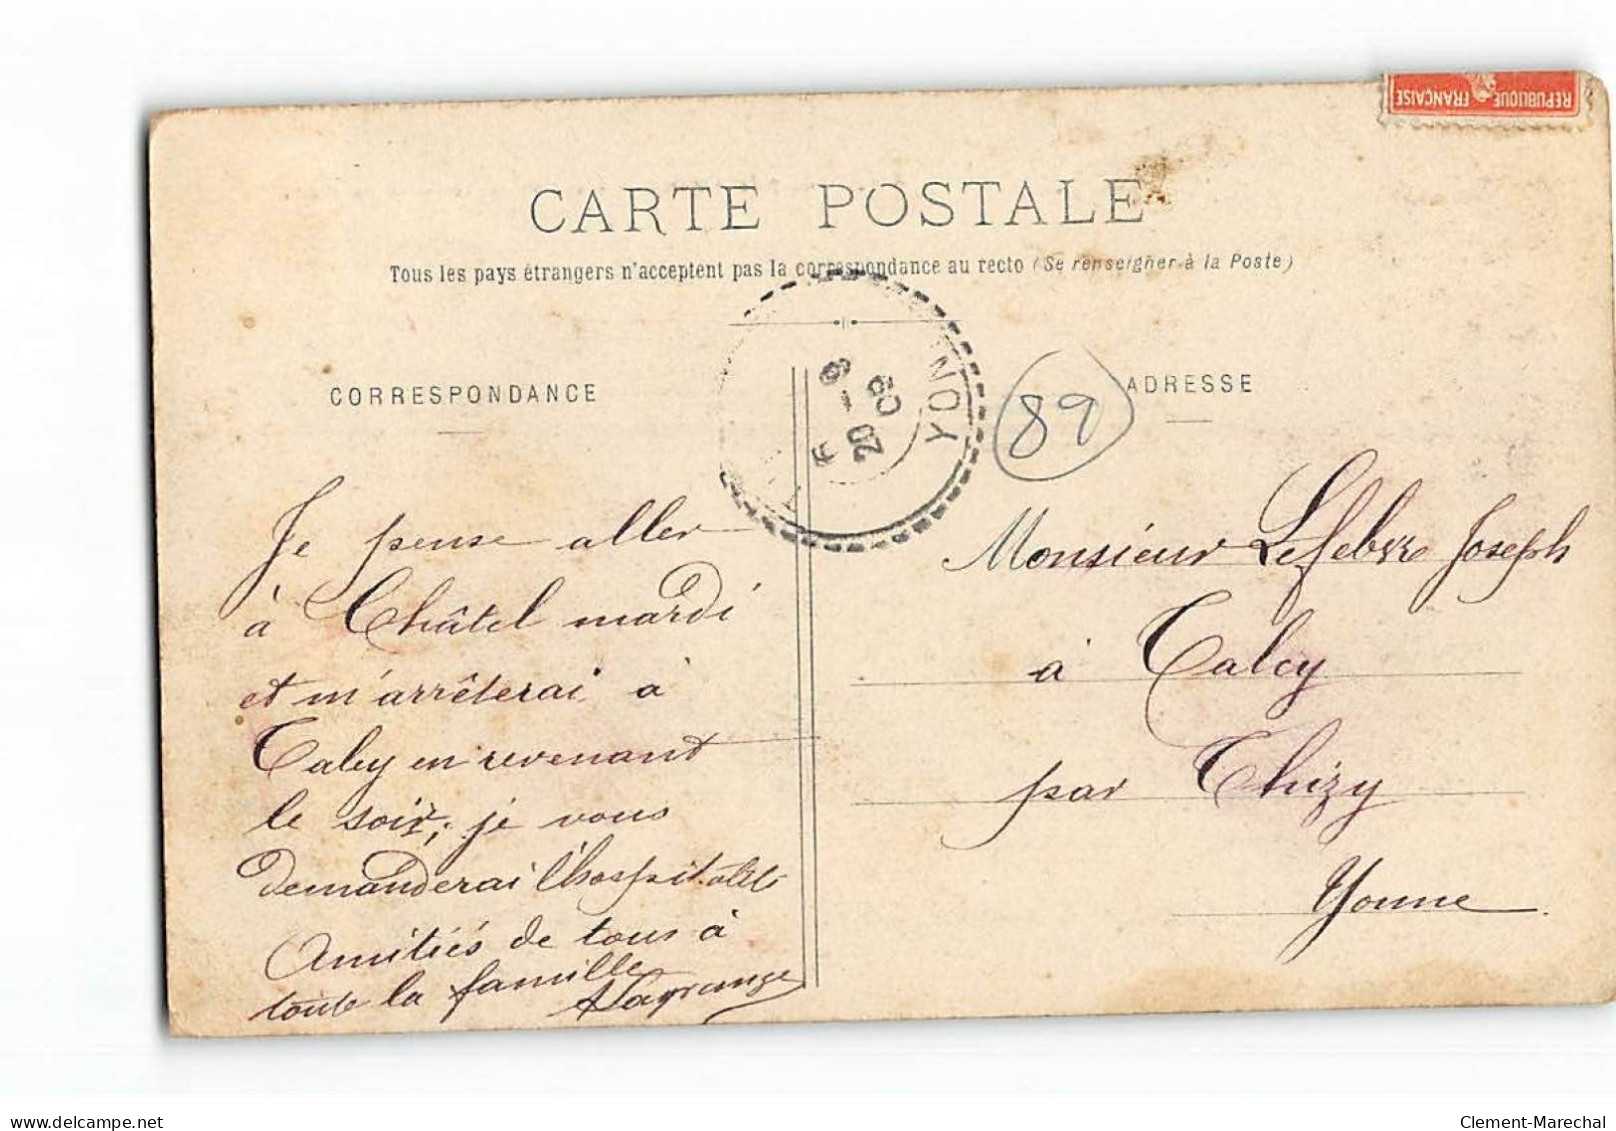 REPUBLIQUE FRANÇAISE
CARTE POSTALE
Tous les pays étrangers n'acceptent pas la correspondance au recto (Se renseigner à la Poste)
CORRESPONDANCE
Je pense aller
à Châtel mardi
et m'arrêterai à
Talcy en revenant
le soir; je vous
demanderai l'hospitalité
Amitiés de tous à
toute la famille
ALagrange
YON
20 - 9
09
89
ADRESSE
Monsieur Lefebvre Joseph
à Talcy
par Thizy
Yonne
delcampe.net
Clement-Marechal